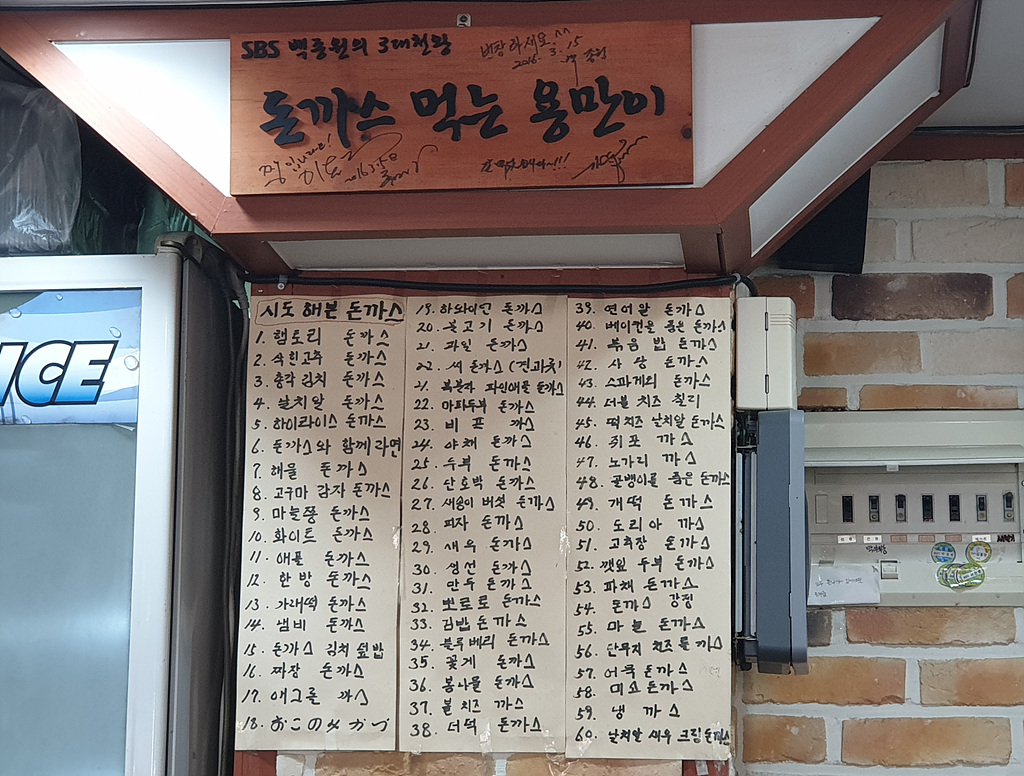 SBS 백종원의 3대천왕
번창하세요! ^^
2016. 3. 15
돈까스 먹는 용만이
ICE
시도 해본 돈까스
1. 햄토리 돈까스
2. 삭힌고추 돈까스
3. 총각김치 돈까스
4. 날치알 돈까스
5. 하이라이스 돈까스
6. 돈까스와 함께라면
7. 해물 돈까스
8. 고구마 감자 돈까스
9. 마늘쫑 돈까스
10. 화이트 돈까스
11. 애플 돈까스
12. 한방 돈까스
13. 가래떡 돈까스
14. 냄비 돈까스
15. 돈까스 김치 덮밥
16. 짜장 돈까스
17. 에그롤 까스
18. おこのみかつ
19. 하와이언 돈까스
20. 불고기 돈까스
21. 과일 돈까스
22. 씨 돈까스 (견과류)
21. 복분자 파인애플 돈까스
22. 마파두부 돈까스
23. 비프 까스
24. 야채 돈까스
25. 두부 돈까스
26. 단호박 돈까스
27. 새송이 버섯 돈까스
28. 피자 돈까스
29. 새우 돈까스
30. 생선 돈까스
31. 만두 돈까스
32. 뽀로로 돈까스
33. 김밥 돈까스
34. 블루베리 돈까스
35. 꽃게 돈까스
36. 봄나물 돈까스
37. 볼 치즈 까스
38. 더덕 돈까스
39. 연어알 돈까스
40. 베이컨을 품은 돈까스
41. 볶음밥 돈까스
42. 사랑 돈까스
43. 스파게티 돈까스
44. 더블 치즈 칠리
45. 떡치즈 날치알 돈까스
46. 쥐포 까스
47. 노가리 까스
48. 골뱅이를 품은 돈까스
49. 개떡 돈까스
50. 도리아 까스
51. 고추장 돈까스
52. 깻잎 두부 돈까스
53. 파채 돈까스
54. 돈까스 강정
55. 마늘 돈까스
56. 단무지 치즈롤 까스
57. 어묵 돈까스
58. 미소 돈까스
59. 냉 까스
60. 날치알 새우 크림 돈까스